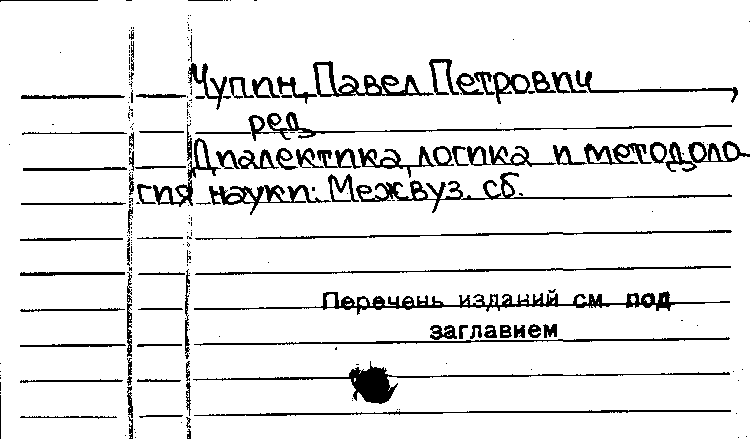 Чупин, Павел Петрович,
ред.
Диалектика, логика и методоло-
гия науки: Межвуз. сб.
Перечень изданий см. под
заглавием